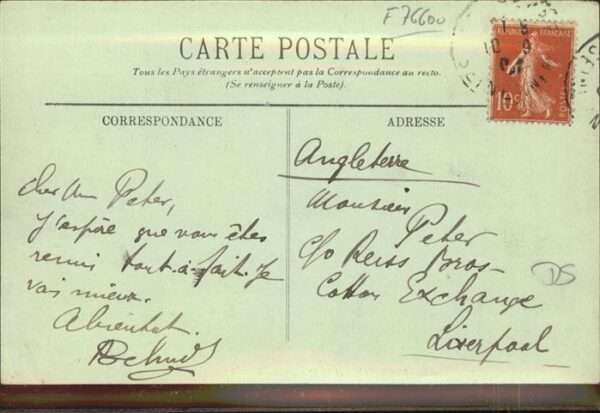 F 76600
CARTE POSTALE
Tous les Pays étrangers n'acceptent pas la Correspondance au recto.
(Se renseigner à la Poste).
RÉPUBLIQUE FRANÇAISE
10c
POSTES
CORRESPONDANCE
Cher Peter,
J'espère que vous êtes
remis tout-à-fait. Je
vais mieux.
A bientôt.
ADRESSE
Angleterre
Monsieur
Peter
c/o Reiss Bros-
Cotton Exchange
Liverpool
DS